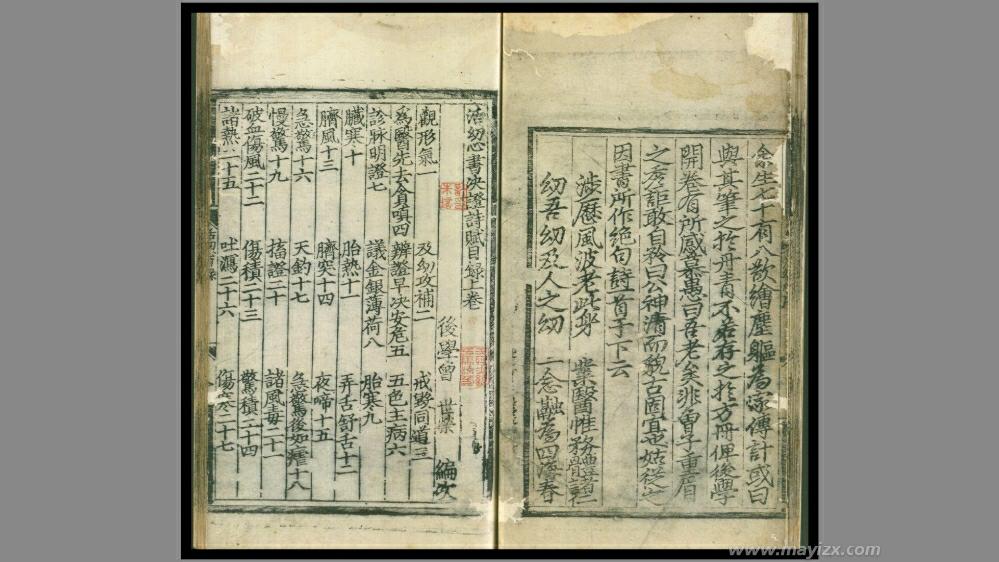 余生七十有八欲繪塵軀為家傳計或曰
與其筆之於丹青不若存之於方冊俾後學
開卷有所感慕愚曰吾老矣非曾子重眉
之彥詎敢自矜曰公神清而貌古固宜也姑從之
因書所作絶句詩首于下云
涉歷風波老此身 業醫惟務體諸仁
幼吾幼及人之幼 一念融為四海春
活幼心書決證詩賦目録上卷
後學曾 世榮 編次
觀形氣一 及幼攻補二 戒勢同道三
為醫先去貪嗔四 辨證早決安危五 五色主病六
診脉明證七 議金銀薄荷八 胎寒九
臟寒十 胎熱十一 弄舌舒舌十二
臍風十三 臍突十四 夜啼十五
急驚十六 天釣十七 急驚後如瘧十八
慢驚十九 搐證二十 諸風毒二十一
破血傷風二十二 傷積二十三 驚積二十四
諸熱二十五 吐瀉二十六 傷寒二十七
www.mayizx.com